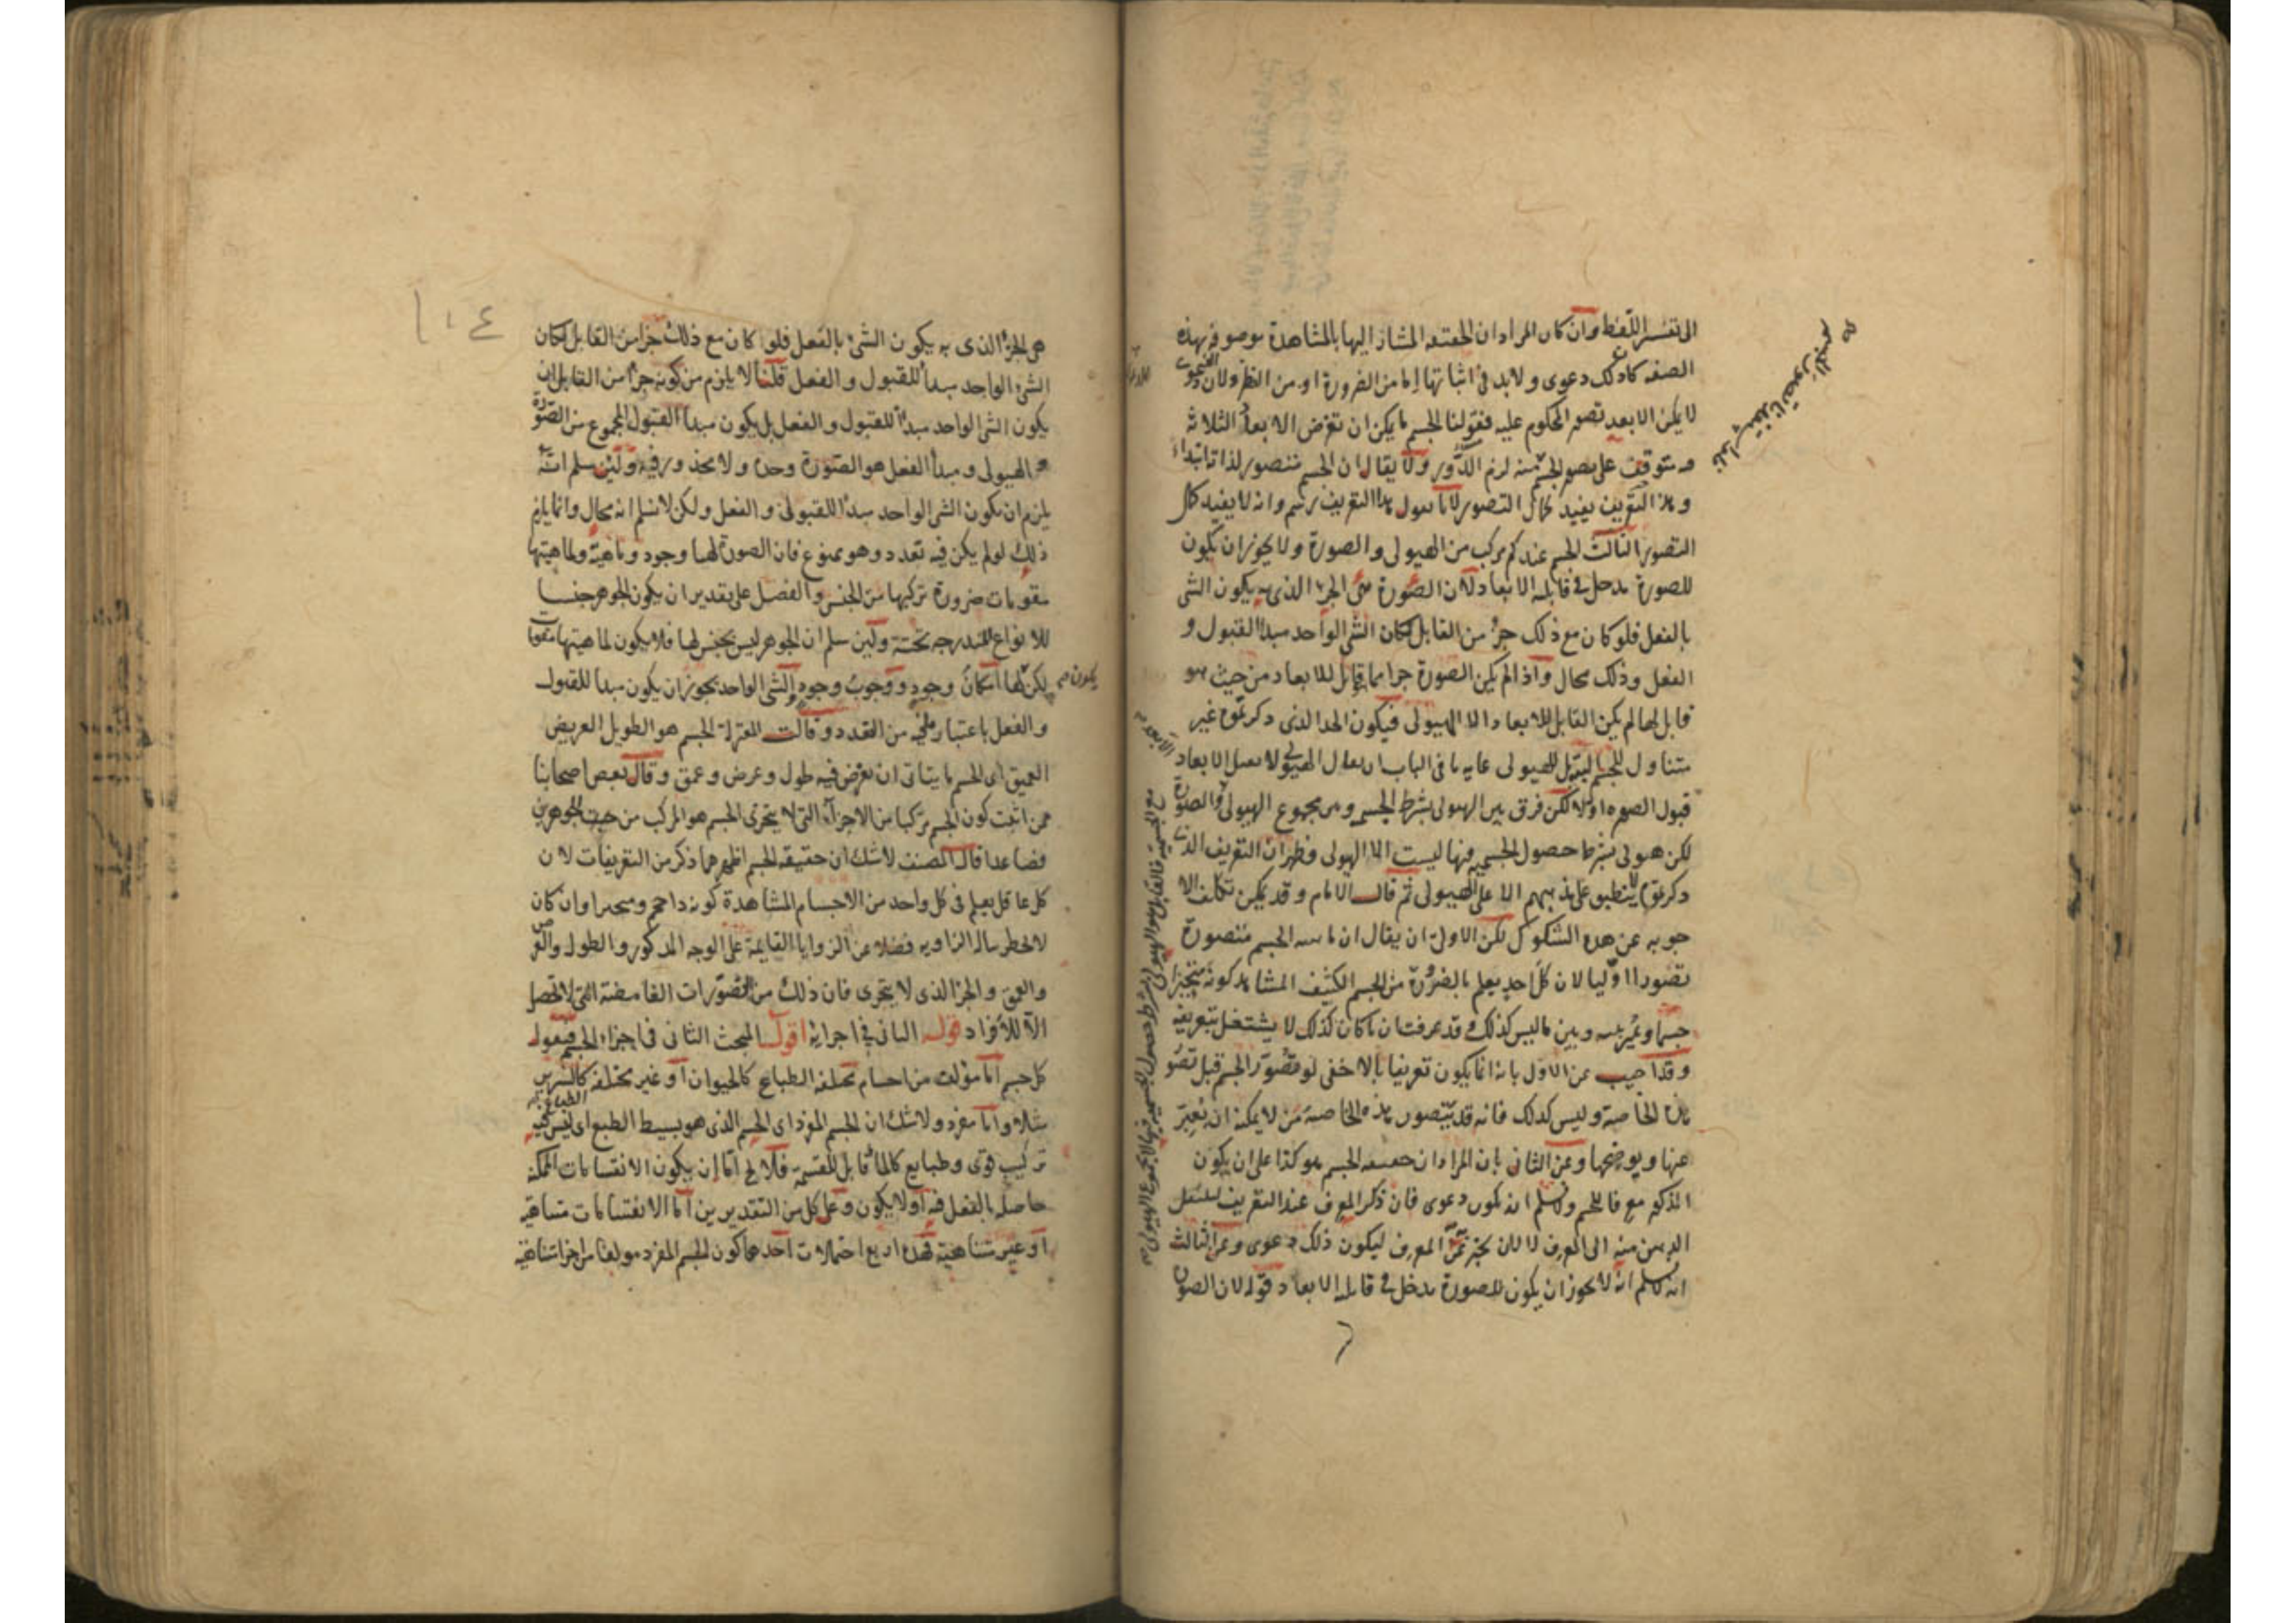 الى تفسير اللفظ وان كان المراد ان الحقيقة المشار اليها بالمشاهدة موصوفة بهذه
الصفة كان ذلك دعوى ولابد فى اثباتها اما من الضرورة او من النظر ولان
لا يمكن الا بعد تصور المحكوم عليه فقولنا الجسم ما يمكن ان تفرض الابعاد الثلاثة
فيه متوقف على تصور الجسم منه لزم الدور ولا يقال ان الجسم متصور لذاته ابتداء
وهذا التعريف يفيد كمال التصور لانا نقول هذا التعريف رسم وانه لا يفيد كمال
التصور الثالث الجسم عندكم مركب من الهيولى والصورة ولا يجوز ان يكون
للصورة مدخل فى قابلية الابعاد لان الصورة هى الجزء الذى به يكون الشى
بالفعل فلو كان مع ذلك جزء من القابل لكان الشى الواحد مبدأ القبول و
الفعل وذلك محال واذا لم يكن الصورة جزا مما قابل للابعاد من حيث هو
قابل لها لم يكن القابل للابعاد الا الهيولى فيكون الحد الذى ذكرتموه غير
متناول للجسم بل للهيولى غاية ما فى الباب ان يقال الهيولى لا تقبل الابعاد
قبول الصورة اولا لكن فرق بين الهيولى بشرط الجسمية وبين مجموع الهيولى والصورة
لكن هيولى بشرط حصول الجسمية فيها ليست الا الهيولى فظهر ان التعريف الذى
ذكرتموه لا ينطبق على مذهبهم الا على الهيولى ثم قال الامام وقد يمكن تكلف الا
جوبه عن هذه الشكوك لكن الاولى ان يقال ان ماهية الجسم متصورة
تصورا اوليا لان كل احد يعلم بالضرورة من الجسم الكثيف المشاهد كونه متحيزا
جسما وميز بينه وبين ما ليس كذلك وقد عرفت ان ما كان كذلك لا يشتغل بتعريفه
وقد اجيب عن الاول بانه انما يكون تعريفا بالاخفى لو تصور الجسم قبل تصور
هذه الخاصة وليس كذلك فانه قد يتصور هذه الخاصة من لا يمكنه ان يعبر
عنها ويوضحها وعن الثانى بان المراد ان حقيقة الجسم هو كذا على ان يكون
المذكور مع قابل الجسم ولا نسلم انه يكون دعوى فان ذكر المعرف عند التعريف لينتقل
الذهن منه الى المعرف لا لان يخبر عن المعرف ليكون ذلك دعوى وعن الثالث
انه لا نسلم انه لا يجوز ان يكون للصورة مدخل فى قابلية الابعاد قوله لان الصورة
١٠٤
هى الجزء الذى به يكون الشئ بالفعل فلو كان مع ذلك جزا من القابل لكان
الشئ الواحد مبدأ للقبول والفعل قلنا لا يلزم من كونه جزءا من القابل ان
يكون الشى الواحد مبدأ للقبول والفعل بل يكون مبدأ القبول المجموع من الصورة
والهيولى ومبدأ الفعل هو الصورة وحده ولا محذور فيه ولئن سلم انه
يلزم ان يكون الشى الواحد مبدأ للقبول والفعل ولكن لا نسلم انه محال وانما يلزم
ذلك لو لم يكن فيه تعدد وهو ممنوع فان الصورة لها وجود وماهية ولماهيتها
مقومات ضرورة تركيبها من الجنس والفصل على تقدير ان يكون الجوهر جنسا
للانواع المندرجه تحته ولئن سلم ان الجوهر ليس بجنس لها فلا يكون لماهيتها مقومات
لكن لها امكان وجود ووجوب وجود والشى الواحد يجوز ان يكون مبدأ للقبول
يكون
والفعل باعتبار ما فيه من التعدد وقالت المعتزلة الجسم هو الطويل العريض
العميق اى الجسم ما يتأتى ان يفرض فيه طول وعرض وعمق وقال بعض اصحابنا
ممن اثبت كون الجسم مركبا من الاجزاء التى لا يتجزى الجسم هو المركب من جوهرين
فصاعدا قال المصنف لا شك ان حقيقة الجسم اظهر مما ذكر من التعريفات لان
كل عاقل يعلم فى كل واحد من الاجسام المشاهدة كونه ذا حجم ومتحيزا وان كان
لا يخطر بباله الزاويه فضلا عن الزوايا القايمة على الوجه المذكور والطول والعرض
والعمق والجزء الذى لا يتجزى فان ذلك من التصورات الغامضة التى لا تحصل
الا للافراد قوله الثانى فى اجزائه اقول المبحث الثانى فى اجزاء الجسم فيقول
كل جسم اما مؤلف من اجسام مختلفة الطباع كالحيوان او غير مختلفة كالسرير
الطباع
مثلا واما مفرد ولا شك ان الجسم المفرد اى الجسم الذى هو بسيط الطبع اى ليس فيه
تركيب قوى وطبايع كالماء قابل للقسمة فلا يخ اما ان يكون الانقسامات الممكنة
حاصلة بالفعل فيه او لا يكون وعلى كل من التقديرين اما الانقسامات متناهية
او غير متناهية فهذه اربع احتمالات احدها كون الجسم المفرد مولفا من اجزا متناهية